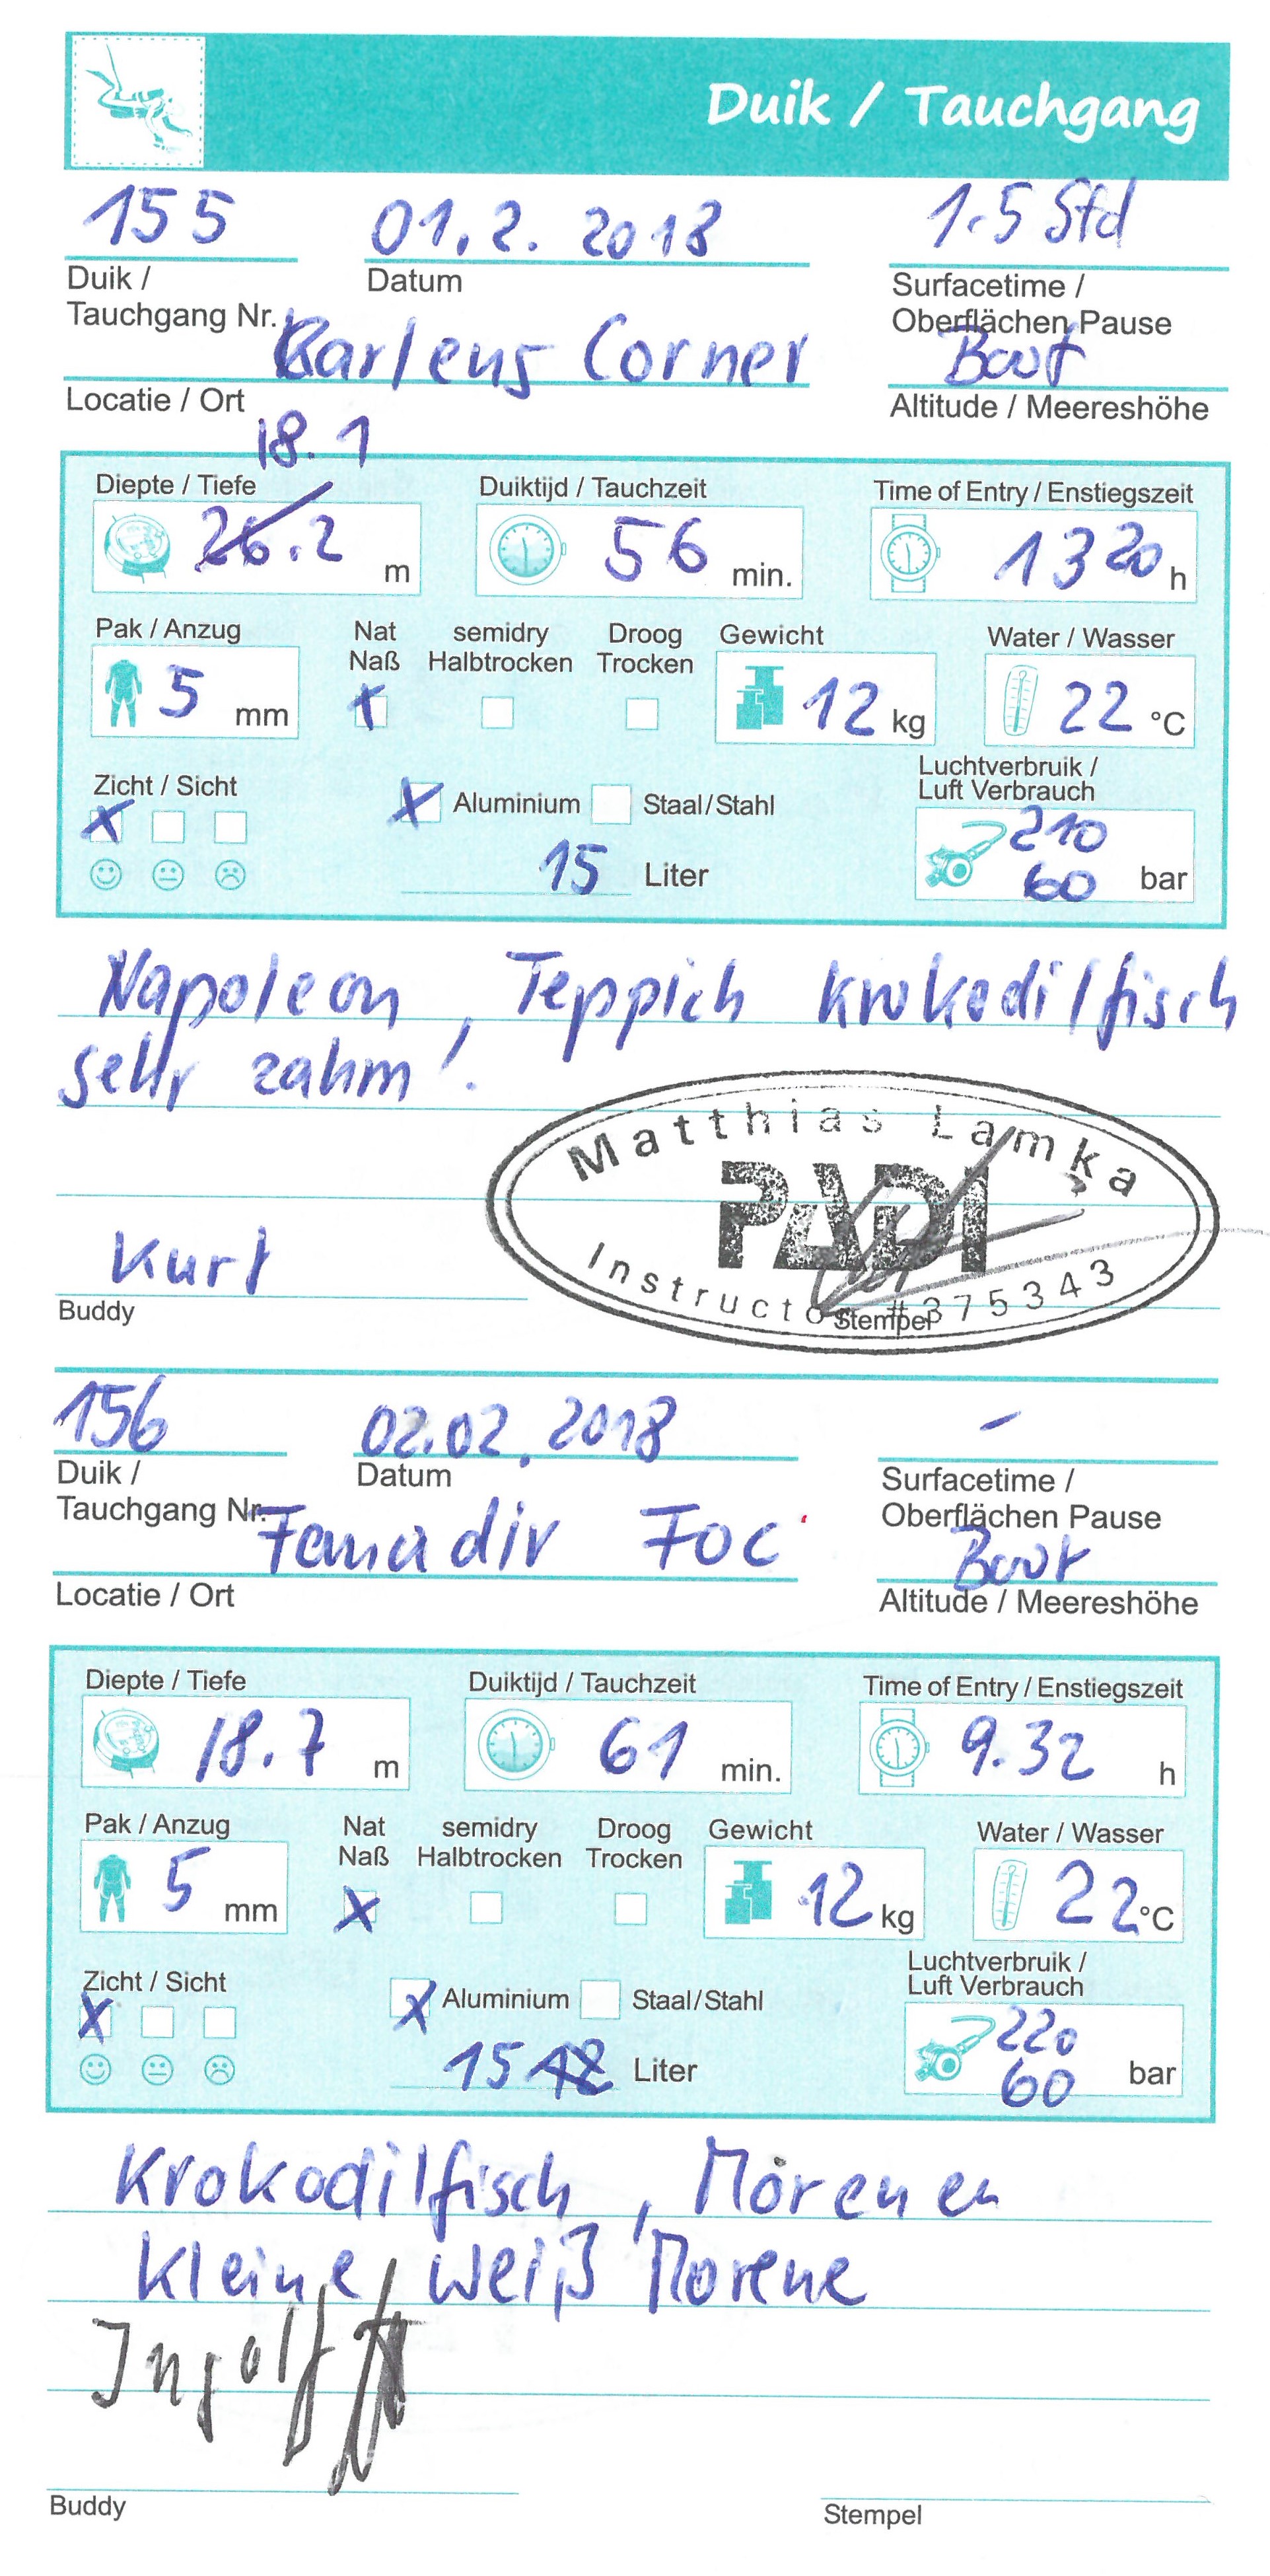 Duik / Tauchgang
155 01.2.2018 1.5 Std
Duik / Datum Surfacetime /
Tauchgang Nr. Oberflächen Pause
Karlens Corner Boot
Locatie / Ort Altitude / Meereshöhe
18.1
Diepte / Tiefe Duiktijd / Tauchzeit Time of Entry / Enstiegszeit
26.2 m 56 min. 13 20 h
Pak / Anzug Nat semidry Droog Gewicht Water / Wasser
Naß Halbtrocken Trocken
5 mm X 12 kg 22 °C
Zicht / Sicht Luchtverbruik /
Luft Verbrauch
X X Aluminium Staal/Stahl 210
15 Liter 60 bar
Napoleon, Teppich Krokodilfisch
sehr zahm!
Matthias Lamka
PADI
Kurt Instructor # 375343
Buddy Stempel
156 02.02.2018 -
Duik / Datum Surfacetime /
Tauchgang Nr. Oberflächen Pause
Fanadir Foc Boot
Locatie / Ort Altitude / Meereshöhe
Diepte / Tiefe Duiktijd / Tauchzeit Time of Entry / Enstiegszeit
18.7 m 61 min. 9.32 h
Pak / Anzug Nat semidry Droog Gewicht Water / Wasser
Naß Halbtrocken Trocken
5 mm X 12 kg 22 °C
Zicht / Sicht Luchtverbruik /
Luft Verbrauch
X X Aluminium Staal/Stahl 220
15 12 Liter 60 bar
Krokodilfisch, Mörenen
Kleine weiß Morene
Ingolf
Buddy Stempel